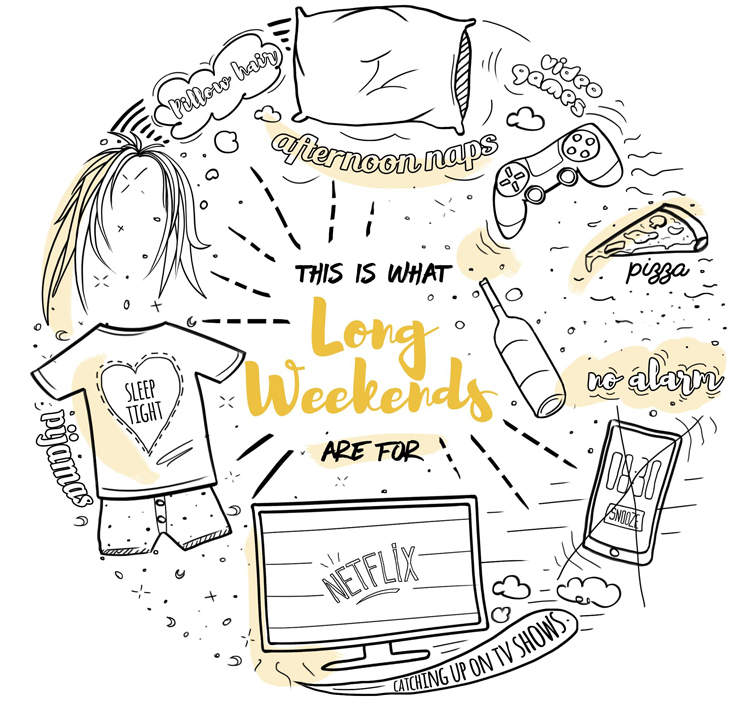 Pillow hair
afternoon naps
video
games
THIS IS WHAT
Long
Weekends
ARE FOR
pizza
no alarm
08:30
SNOOZE
SLEEP
TIGHT
pÿjamas
NETFLIX
CATCHING UP ON TV SHOWS